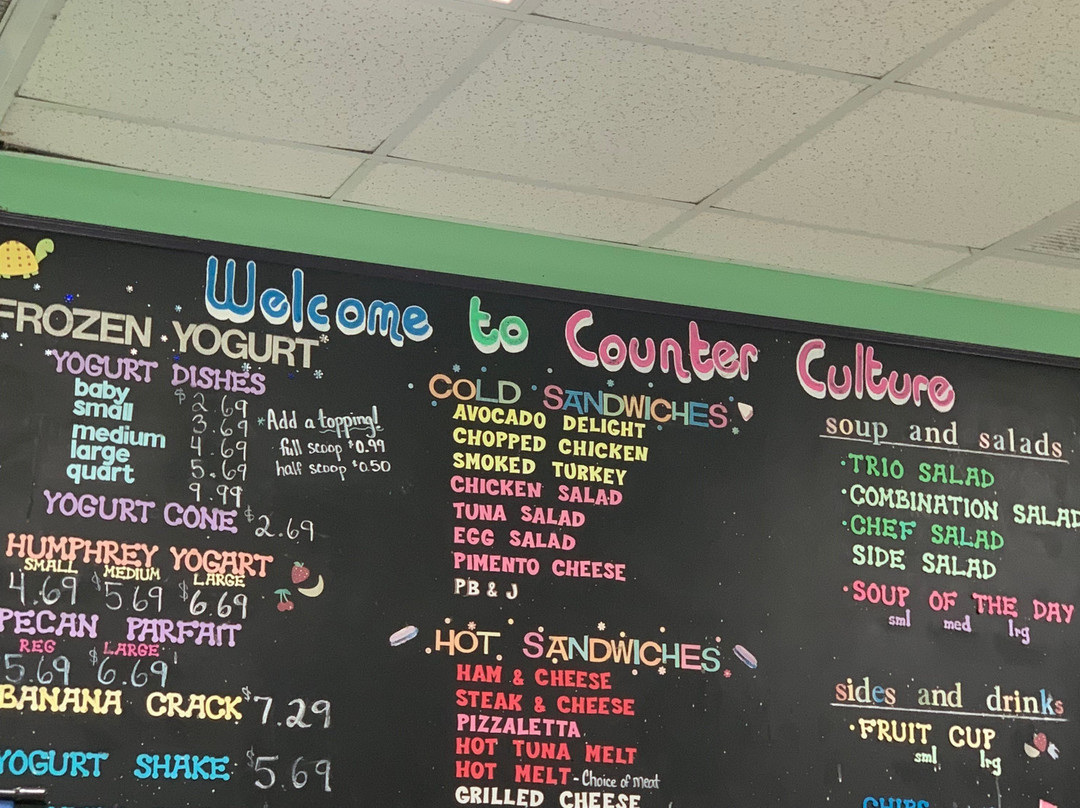 Welcome to Counter Culture
FROZEN YOGURT
YOGURT DISHES
baby $2.69
small 3.69
medium 4.69
large 5.69
quart 9.99
*Add a topping!
full scoop $0.99
half scoop $0.50
YOGURT CONE $2.69
HUMPHREY YOGART
SMALL MEDIUM LARGE
4.69 $5.69 $6.69
PECAN PARFAIT
REG LARGE
5.69 $6.69
BANANA CRACK $7.29
YOGURT SHAKE $5.69
COLD SANDWICHES
AVOCADO DELIGHT
CHOPPED CHICKEN
SMOKED TURKEY
CHICKEN SALAD
TUNA SALAD
EGG SALAD
PIMENTO CHEESE
PB & J
HOT SANDWICHES
HAM & CHEESE
STEAK & CHEESE
PIZZALETTA
HOT TUNA MELT
HOT MELT - Choice of meat
GRILLED CHEESE
soup and salads
·TRIO SALAD
·COMBINATION SALAD
·CHEF SALAD
SIDE SALAD
·SOUP OF THE DAY
sml med lrg
sides and drinks
·FRUIT CUP
sml lrg
CHIPS